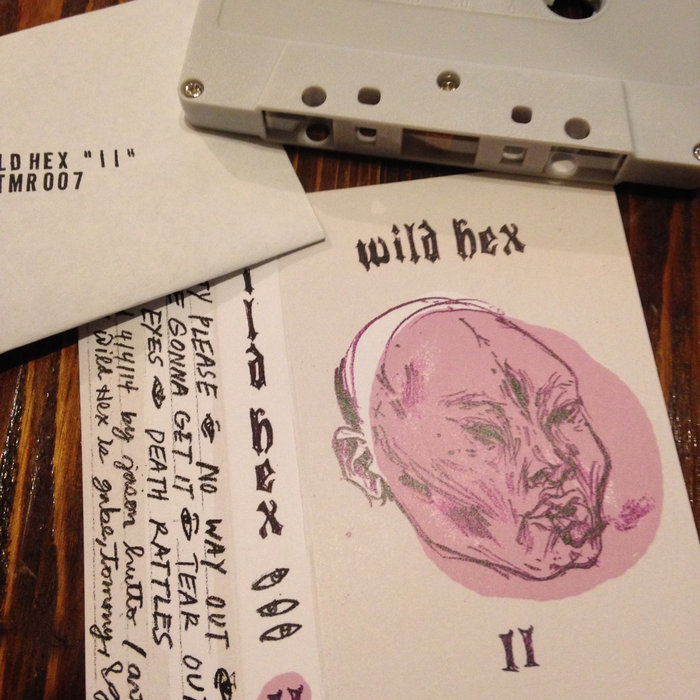 LD HEX "II"
TMR007
wild hex
II
ild hex
II
TY PLEASE NO WAY OUT
E GONNA GET IT TEAR OUT
EYES DEATH RATTLES
4/4/14 by jason hutto / an
Wild Hex is gabe, tommy, &